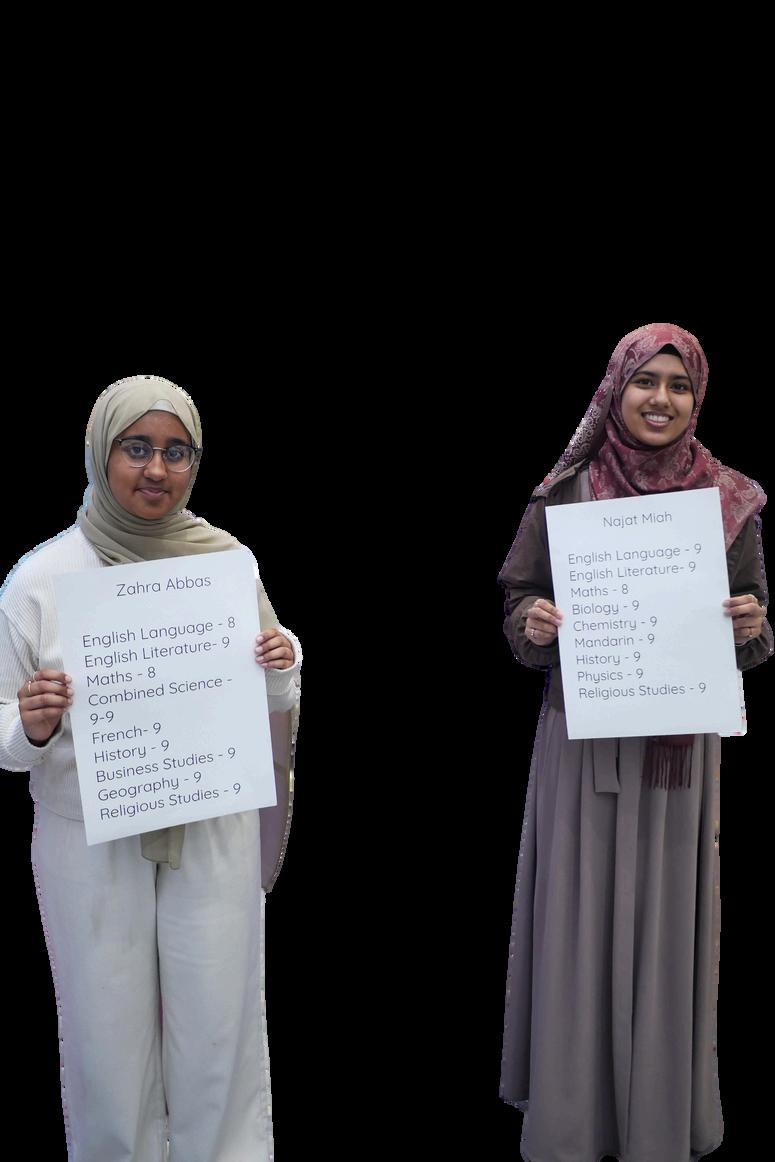 Zahra Abbas
English Language - 8
English Literature- 9
Maths - 8
Combined Science -
9-9
French- 9
History - 9
Business Studies - 9
Geography - 9
Religious Studies - 9
Najat Miah
English Language - 9
English Literature- 9
Maths - 8
Biology - 9
Chemistry - 9
Mandarin - 9
History - 9
Physics - 9
Religious Studies - 9